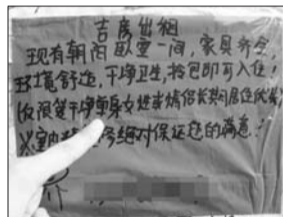 吉房出租
现有朝阳卧室一间,家具齐全,
环境舒适,干净卫生,拎包即可入住!
(仅限爱干净单身女姓或情侣长期居住优先)
室内 绝对保证您的满意!